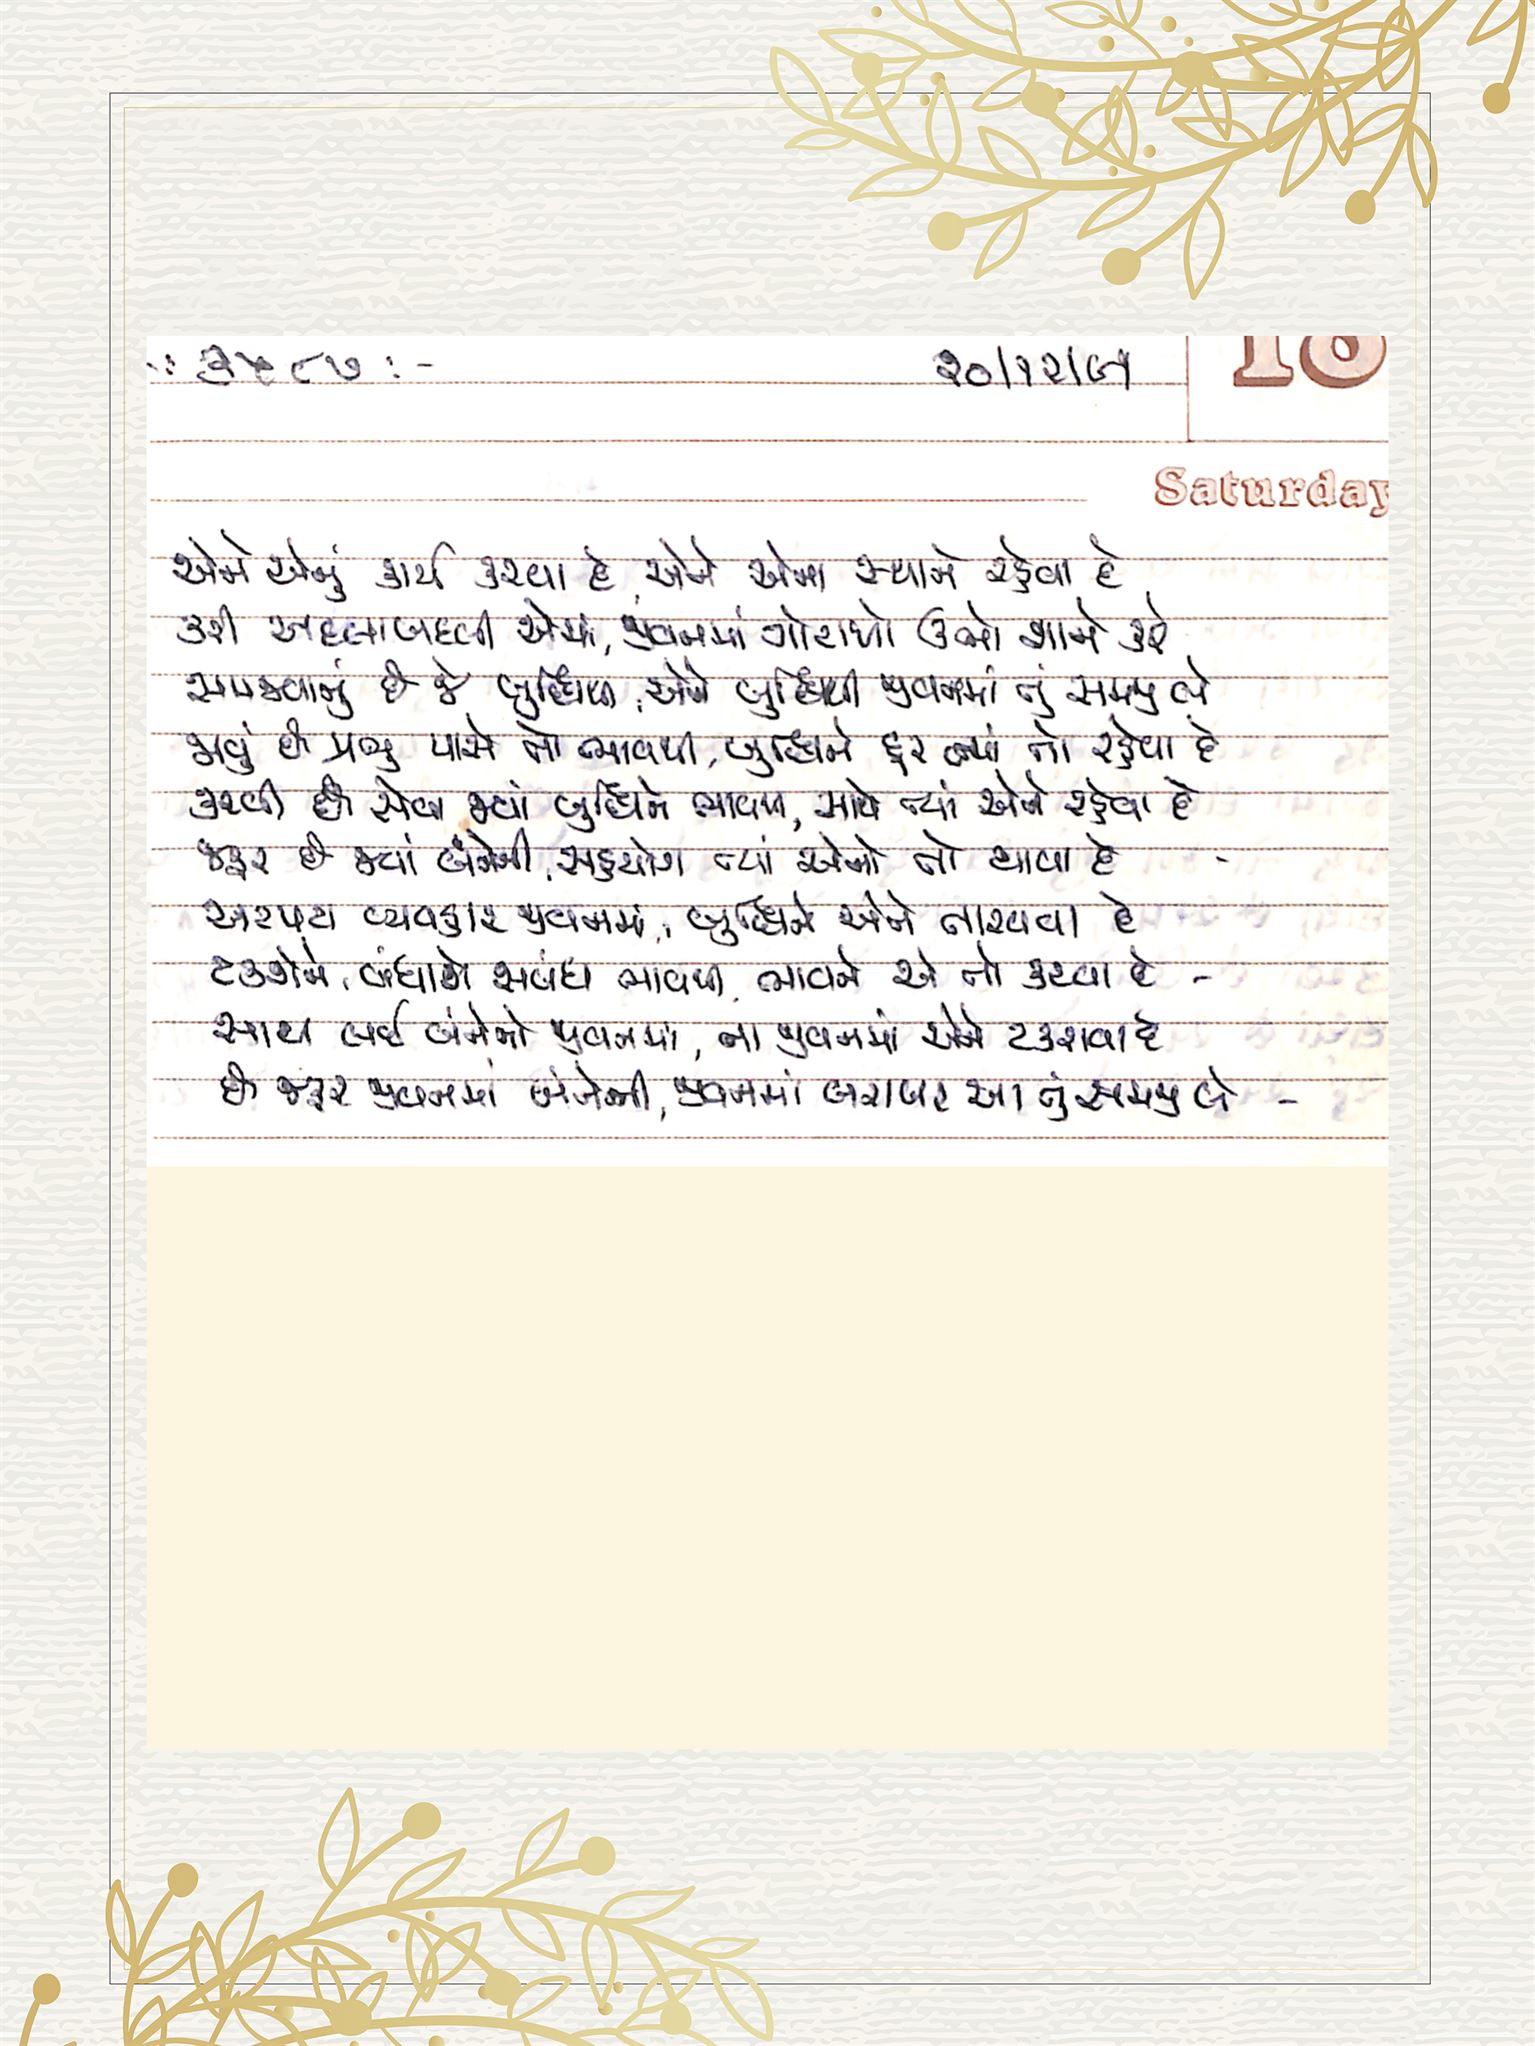 :: ૩૫૮૭ : -
૨૦/૧૨/૯૧
18
Saturday
એને એનું કાર્ય કરવા દે, એને એના સ્થાને રહેવા દે
કરી અદલાબદલી એમાં, જીવનમાં ગોટાળો ઊભો શાને કરે
સમજવાનું છે જે બુદ્ધિથી, એને બુદ્ધિથી જીવનમાં તું સમજી લે
જાવું છે પ્રભુ પાસે તો ભાવથી, બુદ્ધિને દૂર ત્યાં તો રહેવા દે
કરવી છે સેવા જ્યાં બુદ્ધિને ભાવથી, સાથે ત્યાં એને રહેવા દે
જરૂર છે જ્યાં બંનેની, સહયોગ ત્યાં એનો તો થાવા દે -
અટપટા વ્યવહાર જીવનમાં, બુદ્ધિને એને તારવવા દે
ટકશેને, બંધાશે સબંધ ભાવથી, ભાવને એ તો કરવા દે -
સાથ લઈ બંનેનો જીવનમાં, ના જીવનમાં એને ટકરાવા દે
છે જરૂર જીવનમાં બંનેની, જીવનમાં બરાબર આ તું સમજી લે -